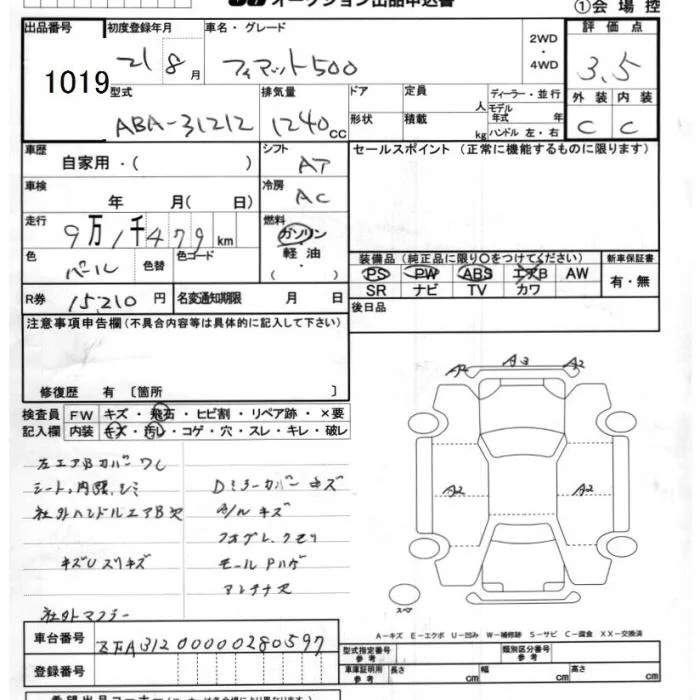 オークション出品申込書
①会場控
出品番号
1019
初度登録年月
21 8月
車名・グレード
フィアット500
2WD
・
4WD
評価点
3.5
型式
ABA-31212
排気量
1240cc
ドア
定員
人
形状
積載
kg
ディーラー・並行
モデル年式 年
ハンドル 左・右
外装 内装
C C
車歴
自家用・( )
シフト
AT
セールスポイント (正常に機能するものに限ります)
車検
年 月( 日)
冷房
AC
走行
9万1千479km
燃料
ガソリン
軽油
( ・ )
色
パール
色替
色コード
装備品 (純正品に限り○をつけてください)
PS PW ABS エアB AW
SR ナビ TV カワ
新車保証書
有・無
R券
15,210円
名変通知期限 月 日
後日品
注意事項申告欄 (不具合内容等は具体的に記入して下さい)
修復歴 有 〔箇所 〕
検査員記入欄
FW キズ・飛石・ヒビ割・リペア跡・×要
内装 キズ・汚レ・コゲ・穴・スレ・キレ・破レ
左エアBカバーワレ
シート、内張、シミ
Dミラーカバーキズ
社外ハンドルエアB欠
A/Wキズ
フォグレ、クモリ
キズUスリキズ
モールPハゲ
アンテナ欠
社外マフラー
A2 A3 A2
A2 A2
スペア
A－キズ E－エクボ U－凹み W－補修跡 S－サビ C－腐食 XX－交換済
車台番号
ZFA31200000280597
登録番号
型式指定番号
参考
類別区分番号
参考
車庫証明用
参考
長さ cm
幅 cm
高さ cm